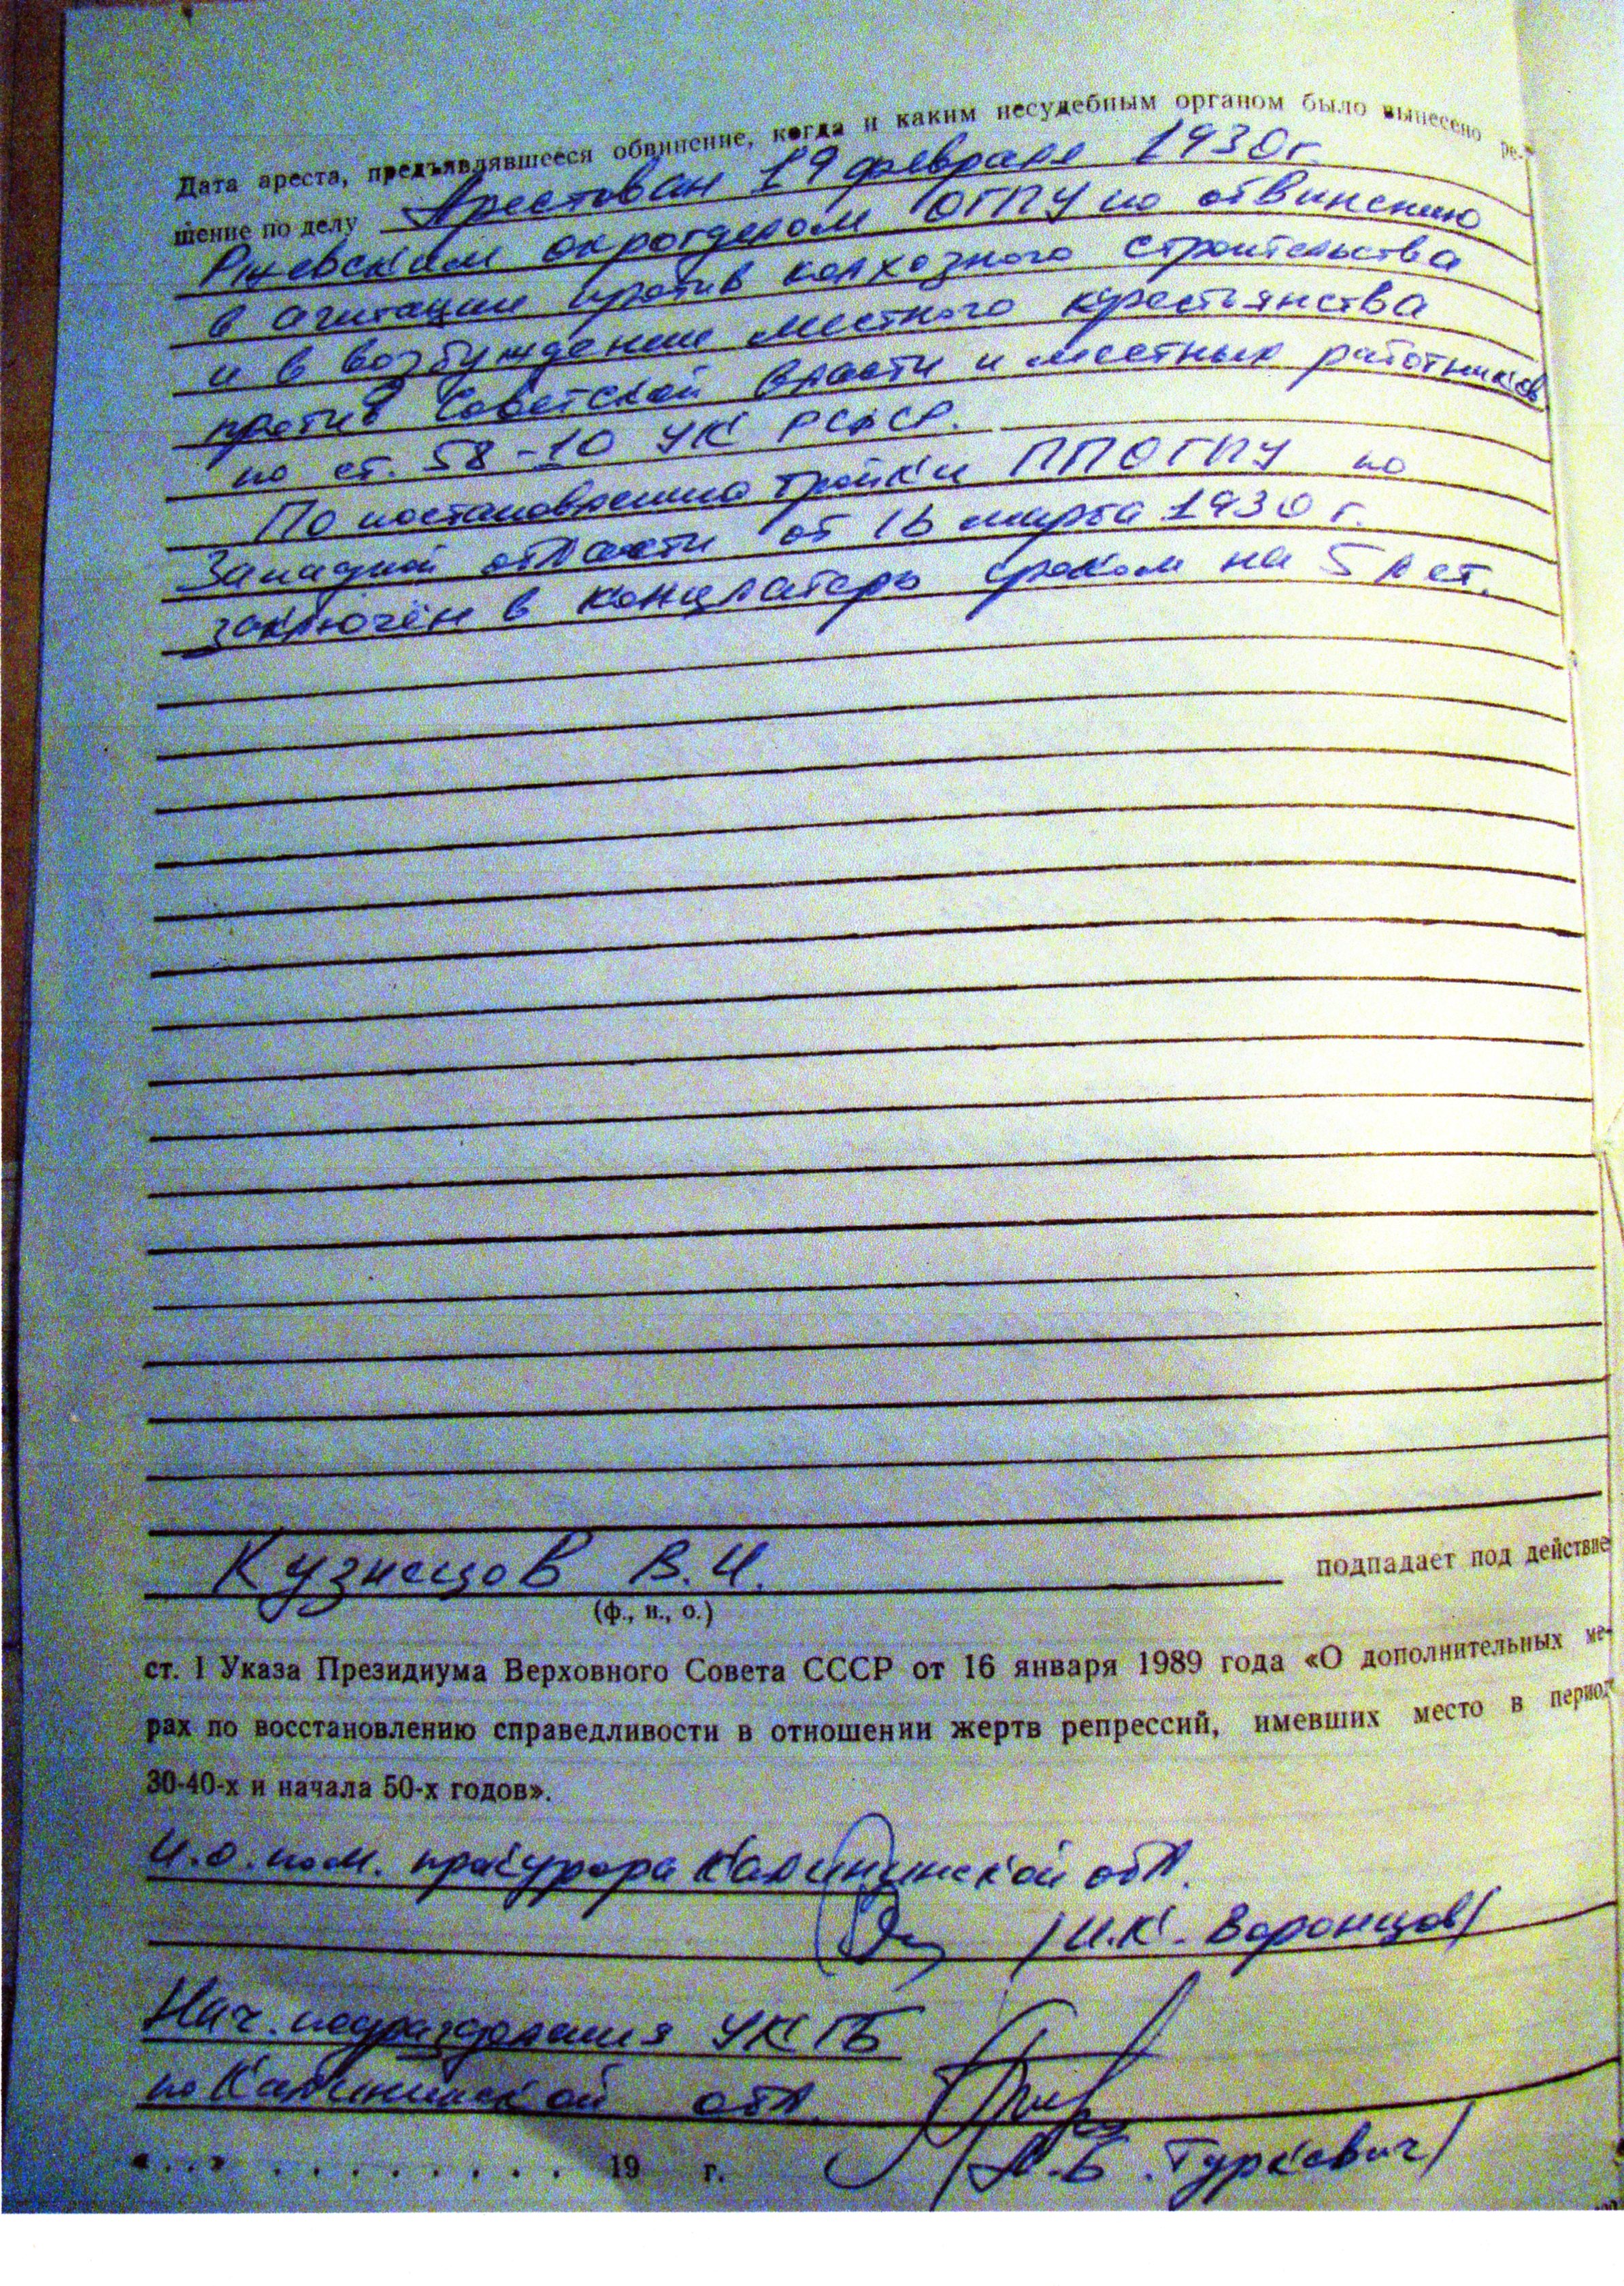 Дата ареста, предъявлявшееся обвинение, когда и каким несудебным органом было вынесено ре-
шение по делу Арестован 19 февраля 1930 г.
Ржевским окротделом ОГПУ по обвинению
в агитации против колхозного строительства
и в возбуждении местного крестьянства
против Советской власти и местных работников
по ст. 58-10 УК РСФСР.
По постановлению тройки ППОГПУ по
Западной области от 16 марта 1930 г.
заключён в концлагерь сроком на 5 лет.
Кузнецов В.И. подпадает под действие
(ф., и., о.)
ст. 1 Указа Президиума Верховного Совета СССР от 16 января 1989 года «О дополнительных ме-
рах по восстановлению справедливости в отношении жертв репрессий, имевших место в период
30-40-х и начала 50-х годов».
И.о. пом. прокурора Калининской обл.
/И.К. Воронцов/
Нач. подразделения УКГБ
по Калининской обл.
«...» . . . . . . . . . 19 г. /А.Б. Туркевич/